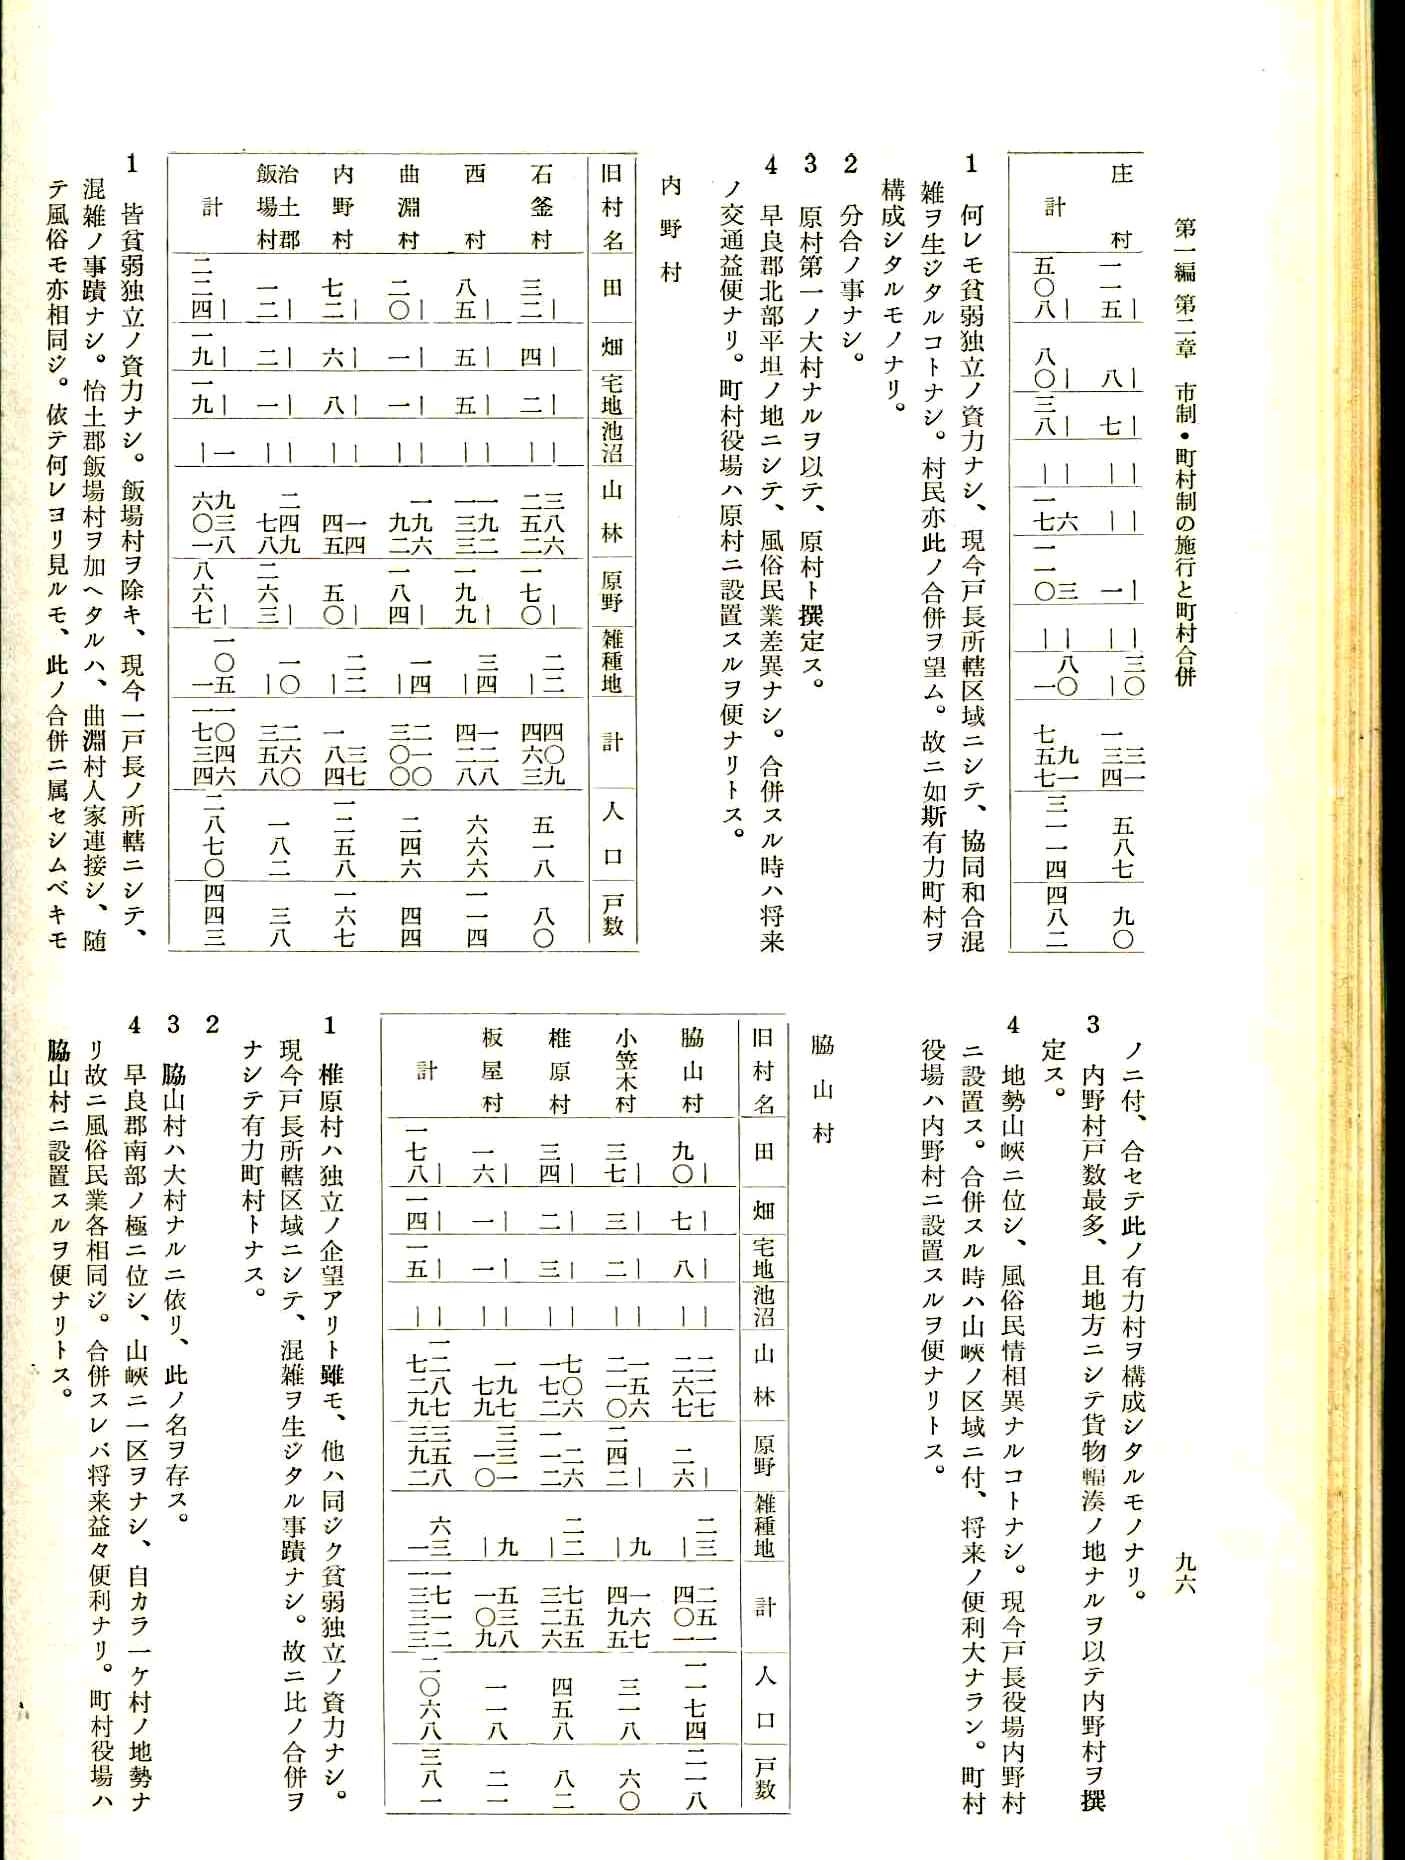 第一編 第二章 市制・町村制の施行と町村合併
九六
庄村 ― 一一五 ― 八 ― 七 ― ― ― ― ― 一 ― ― 三〇 ― 三一 一三四 五八七 九〇
計 ― 五〇八 ― 八〇 ― 三八 ― ― 六 一七 三 一一〇 ― ― 八〇 一 九一 七五七 三一一四 四八二
1 何レモ貧弱独立ノ資力ナシ、現今戸長所轄区域ニシテ、協同和合混
雑ヲ生ジタルコトナシ。村民亦此ノ合併ヲ望ム。故ニ如斯有力町村ヲ
構成シタルモノナリ。
2 分合ノ事ナシ。
3 原村第一ノ大村ナルヲ以テ、原村ト撰定ス。
4 早良郡北部平坦ノ地ニシテ、風俗民業差異ナシ。合併スル時ハ将来
ノ交通益便ナリ。町村役場ハ原村ニ設置スルヲ便ナリトス。
内野村
旧村名 田 畑 宅地 池沼 山林 原野 雑種地 計 人口 戸数
石釜村 ― 三二 ― 四 ― 二 ― ― 三八六 二五二 ― 一七〇 二二 ― 四〇九 四六三 五一八 八〇
西村 ― 八五 ― 五 ― 五 ― ― 一九二 一三三 ― 一九九 三四 ― 一二八 四二八 六六六 一一四
曲淵村 ― 二〇 ― 一 ― 一 ― ― 一九六 九二 ― 一八四 一四 ― 二一〇 三〇〇 二四六 四四
内野村 ― 七二 ― 六 ― 八 ― ― 一四 四五 ― 五〇 二二 ― 三七 一八四 一二五八 一六七
治土郡飯場村 ― 一二 ― 二 ― 一 ― ― 二四九 七八 ― 二六三 一〇 ― 二六〇 三五八 一八二 三八
計 ― 二二四 ― 一九 ― 一九 一 ― 九三八 六〇一 ― 八六七 一〇五 一 一〇四六 一七三四 二八七〇 四四三
1 皆貧弱独立ノ資力ナシ。飯場村ヲ除キ、現今一戸長ノ所轄ニシテ、
混雑ノ事蹟ナシ。怡土郡飯場村ヲ加ヘタルハ、曲淵村人家連接シ、随
テ風俗モ亦相同ジ。依テ何レヨリ見ルモ、此ノ合併ニ属セシムベキモ
ノニ付、合セテ此ノ有力村ヲ構成シタルモノナリ。
3 内野村戸数最多、且地方ニシテ貨物輻湊ノ地ナルヲ以テ内野村ヲ撰
定ス。
4 地勢山峡ニ位シ、風俗民情相異ナルコトナシ。現今戸長役場内野村
ニ設置ス。合併スル時ハ山峡ノ区域ニ付、将来ノ便利大ナラン。町村
役場ハ内野村ニ設置スルヲ便ナリトス。
脇山村
旧村名 田 畑 宅地 池沼 山林 原野 雑種地 計 人口 戸数
脇山村 ― 九〇 ― 七 ― 八 ― ― 二二七 二六七 ― 二六 二三 ― 二五一 四〇一 一一七四 二一八
小笠木村 ― 三七 ― 三 ― 二 ― ― 一五六 二一〇 ― 二四二 九 ― 一六七 四九五 三一八 六〇
椎原村 ― 三四 ― 二 ― 三 ― ― 七〇六 一七二 二六 一一二 二二 ― 七五五 三二六 四五八 八二
板屋村 ― 一六 ― 一 ― 一 ― ― 一九七 七九 三三一 一〇 九 ― 五三八 一〇九 一一八 二一
計 ― 一七八 ― 一四 ― 一五 ― ― 一二八七 七二九 三五八 三九二 六三 一 一七一二 一三三三 二〇六八 三八一
1 椎原村ハ独立ノ企望アリト雖モ、他ハ同ジク貧弱独立ノ資力ナシ。
現今戸長所轄区域ニシテ、混雑ヲ生ジタル事蹟ナシ。故ニ比ノ合併ヲ
ナシテ有力町村トナス。
2
3 脇山村ハ大村ナルニ依リ、此ノ名ヲ存ス。
4 早良郡南部ノ極ニ位シ、山峡ニ一区ヲナシ、自カラ一ケ村ノ地勢ナ
リ故ニ風俗民業各相同ジ。合併スレバ将来益々便利ナリ。町村役場ハ
脇山村ニ設置スルヲ便ナリトス。